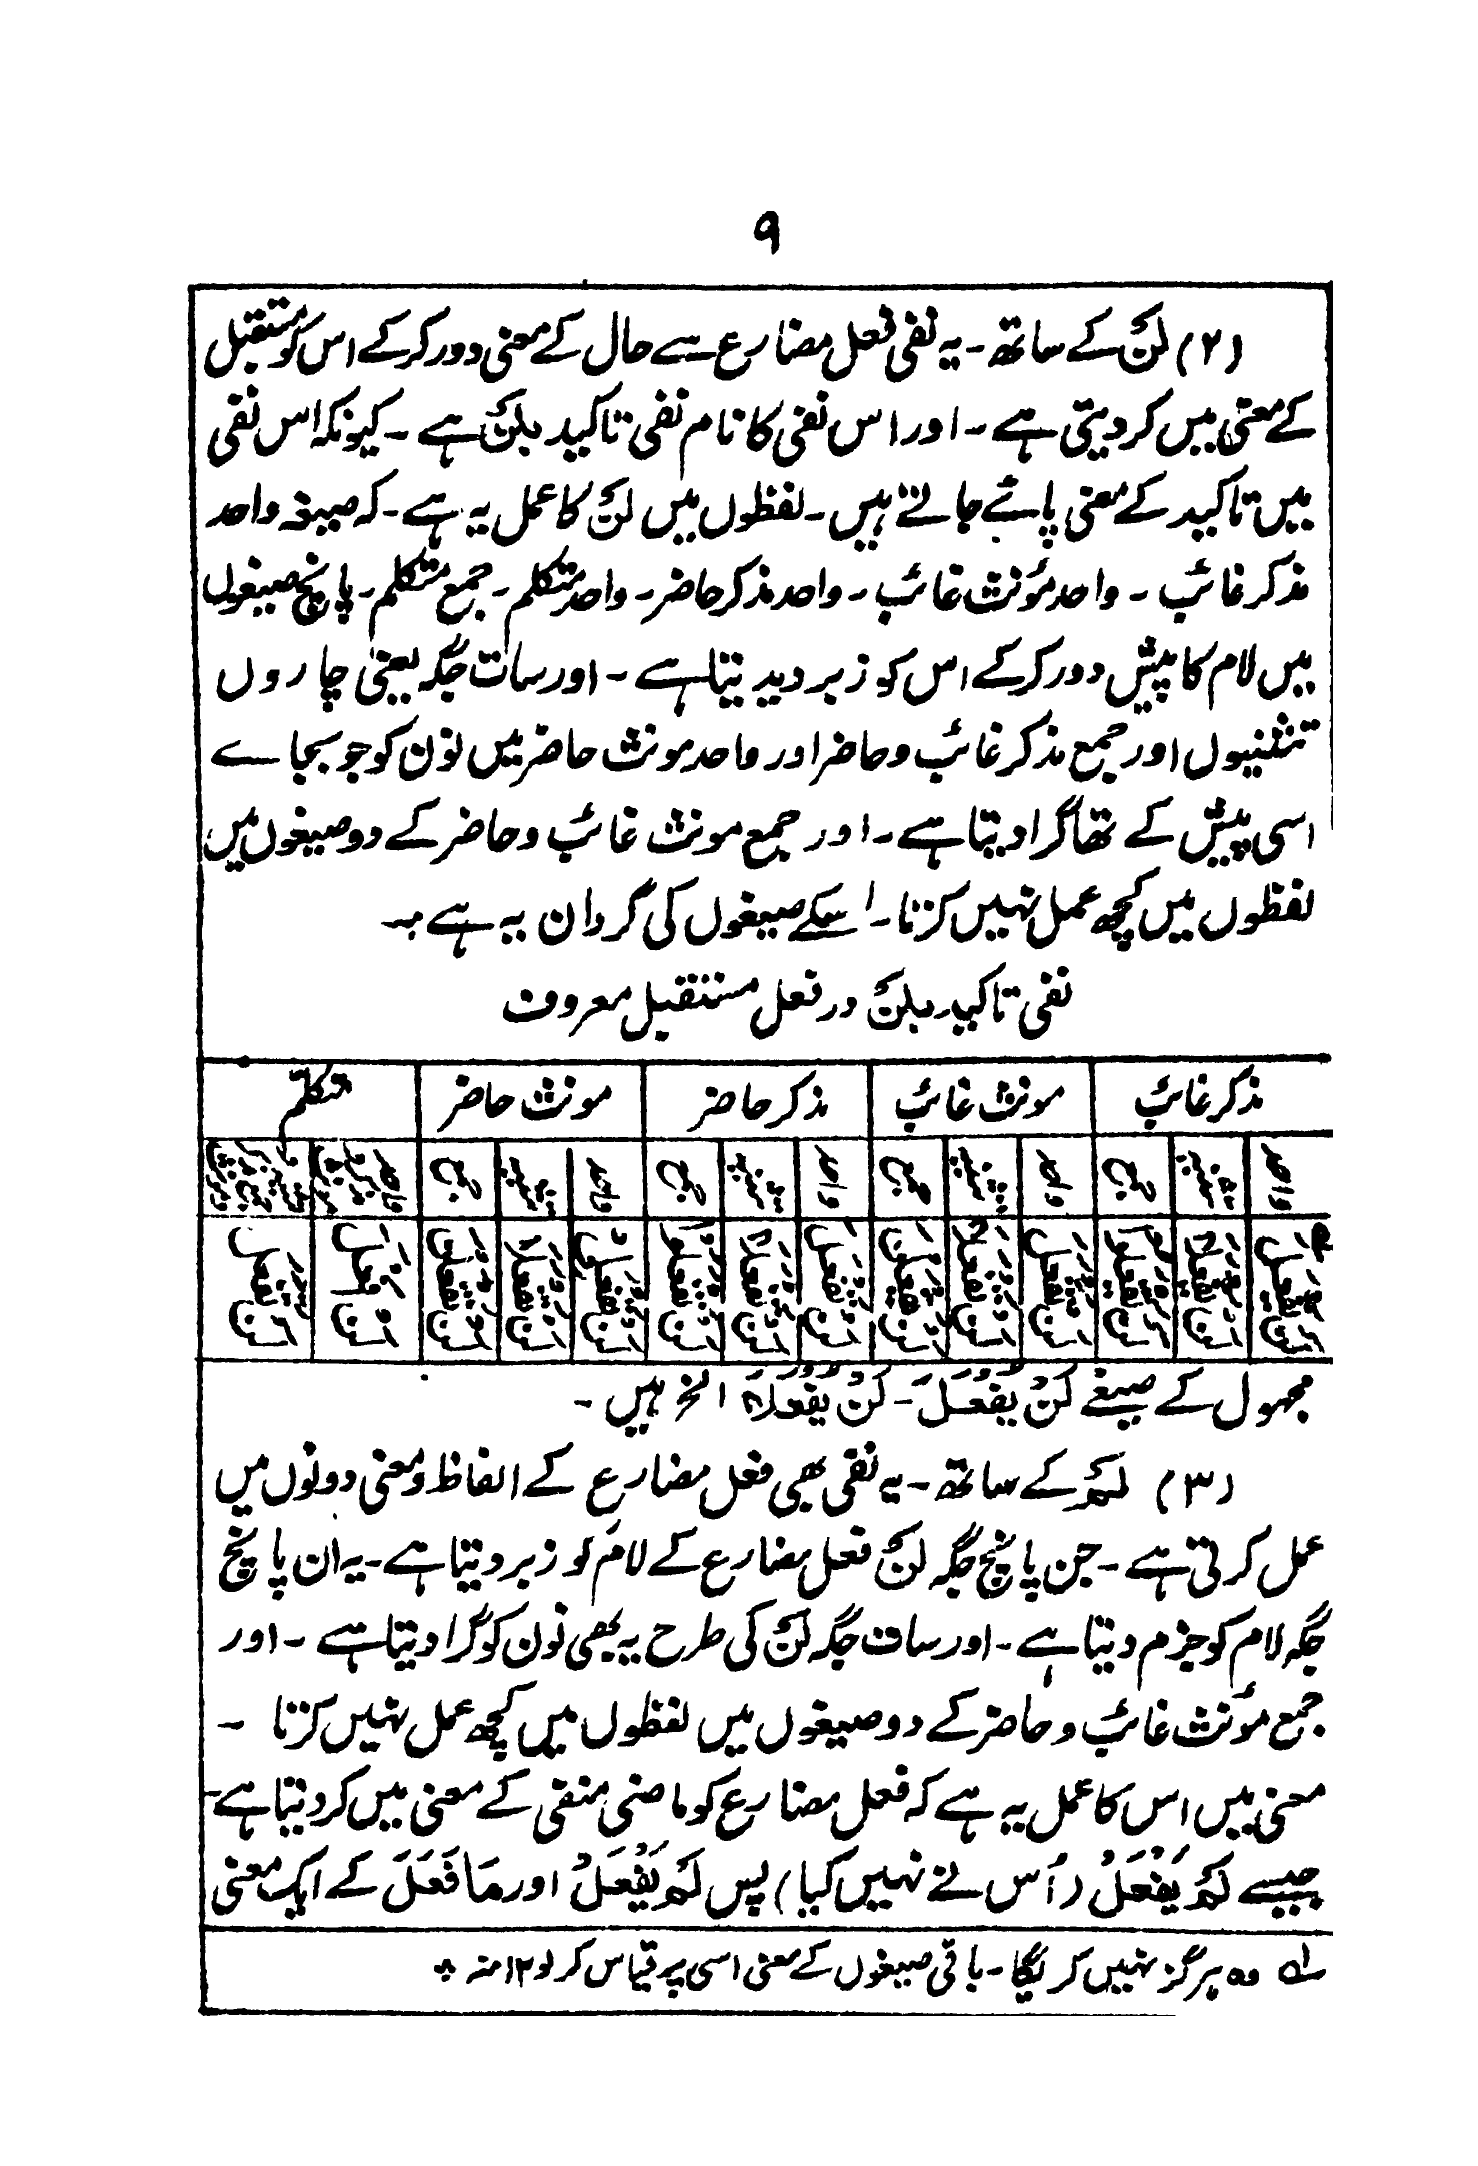 ۹
(۲) لَنْ کے ساتھ ۔ یہ نفی فعل مضارع سے حال کے معنی دور کر کے اس کو مستقبل
کے معنی میں کر دیتی ہے ۔ اور اس نفی کا نام نفی تاکید بلَنْ ہے ۔ کیونکہ اس نفی
میں تاکید کے معنی پائے جاتے ہیں ۔ لفظوں میں لَنْ کا عمل یہ ہے ۔ کہ صیغہ واحد
مذکر غائب ۔ واحد مؤنث غائب ۔ واحد مذکر حاضر ۔ واحد متکلم ۔ جمع متکلم ۔ پانچ صیغوں
میں لام کا پیش دور کر کے اس کو زبر دیدیتا ہے ۔ اور سات جگہ یعنی چاروں
تثنیوں اور جمع مذکر غائب و حاضر اور واحد مونث حاضر میں نون کو جو بجاے
اسی پیش کے تھا گرا دیتا ہے ۔ اور جمع مونث غائب و حاضر کے دو صیغوں میں
لفظوں میں کچھ عمل نہیں کرتا ۔ اسکے صیغوں کی گردان یہ ہے :۔
نفی تاکید بلَنْ در فعل مستقبل معروف
مذکر غائب | مونث غائب | مذکر حاضر | مونث حاضر | متکلم
واحد | تثنیہ | جمع | واحد | تثنیہ | جمع | واحد | تثنیہ | جمع | واحد | تثنیہ | جمع
لَنْ یَّفْعَلَ | لَنْ یَّفْعَلَا | لَنْ یَّفْعَلُوْا | لَنْ تَفْعَلَ | لَنْ تَفْعَلَا | لَنْ یَّفْعَلْنَ | لَنْ تَفْعَلَ | لَنْ تَفْعَلَا | لَنْ تَفْعَلُوْا | لَنْ تَفْعَلِیْ | لَنْ تَفْعَلَا | لَنْ تَفْعَلْنَ | لَنْ اَفْعَلَ | لَنْ نَّفْعَلَ
مجہول کے صیغے لَنْ یُّفْعَلَ ۔ لَنْ یُّفْعَلَا الخ ہیں ۔
(۳) لَمْ کے ساتھ ۔ یہ نفی بھی فعل مضارع کے الفاظ و معنی دونوں میں
عمل کرتی ہے ۔ جن پانچ جگہ لَنْ فعل مضارع کے لام کو زبر دیتا ہے ۔ یہ ان پانچ
جگہ لام کو جزم دیتا ہے ۔ اور سات جگہ لَنْ کی طرح یہ بھی نون کو گرا دیتا ہے ۔ اور
جمع مؤنث غائب و حاضر کے دو صیغوں میں لفظوں میں کچھ عمل نہیں کرتا ۔
معنی میں اس کا عمل یہ ہے کہ فعل مضارع کو ماضی منفی کے معنی میں کر دیتا ہے ۔
جیسے لَمْ یَفْعَلْ (اُس نے نہیں کیا) پس لَمْ یَفْعَلْ اور مَا فَعَلَ کے ایک معنی
؎ وہ ہرگز نہیں کریگا ۔ باقی صیغوں کے معنی اسی پر قیاس کر لو ۱۲ منہ